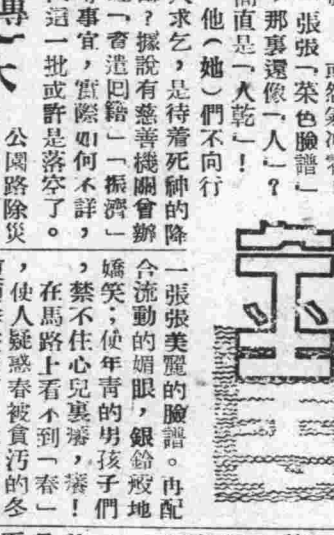 張張「菜色臉譜」
那裏還像「人」？
簡直是「人乾」！
他（她）們不向行
人求乞，是待着死神的降
？據說有慈善機關曾辦
「資遣回籍」「振濟」
事宜，實際如何不詳，
這一批或許是落空了。
公園路除災
一張張美麗的臉譜。再配
合流動的媚眼，銀鈴般地
嬌笑；使年青的男孩子們
，禁不住心兒裏癢，癢！
在馬路上看不到「春」
，使人疑惑春被貪污的冬